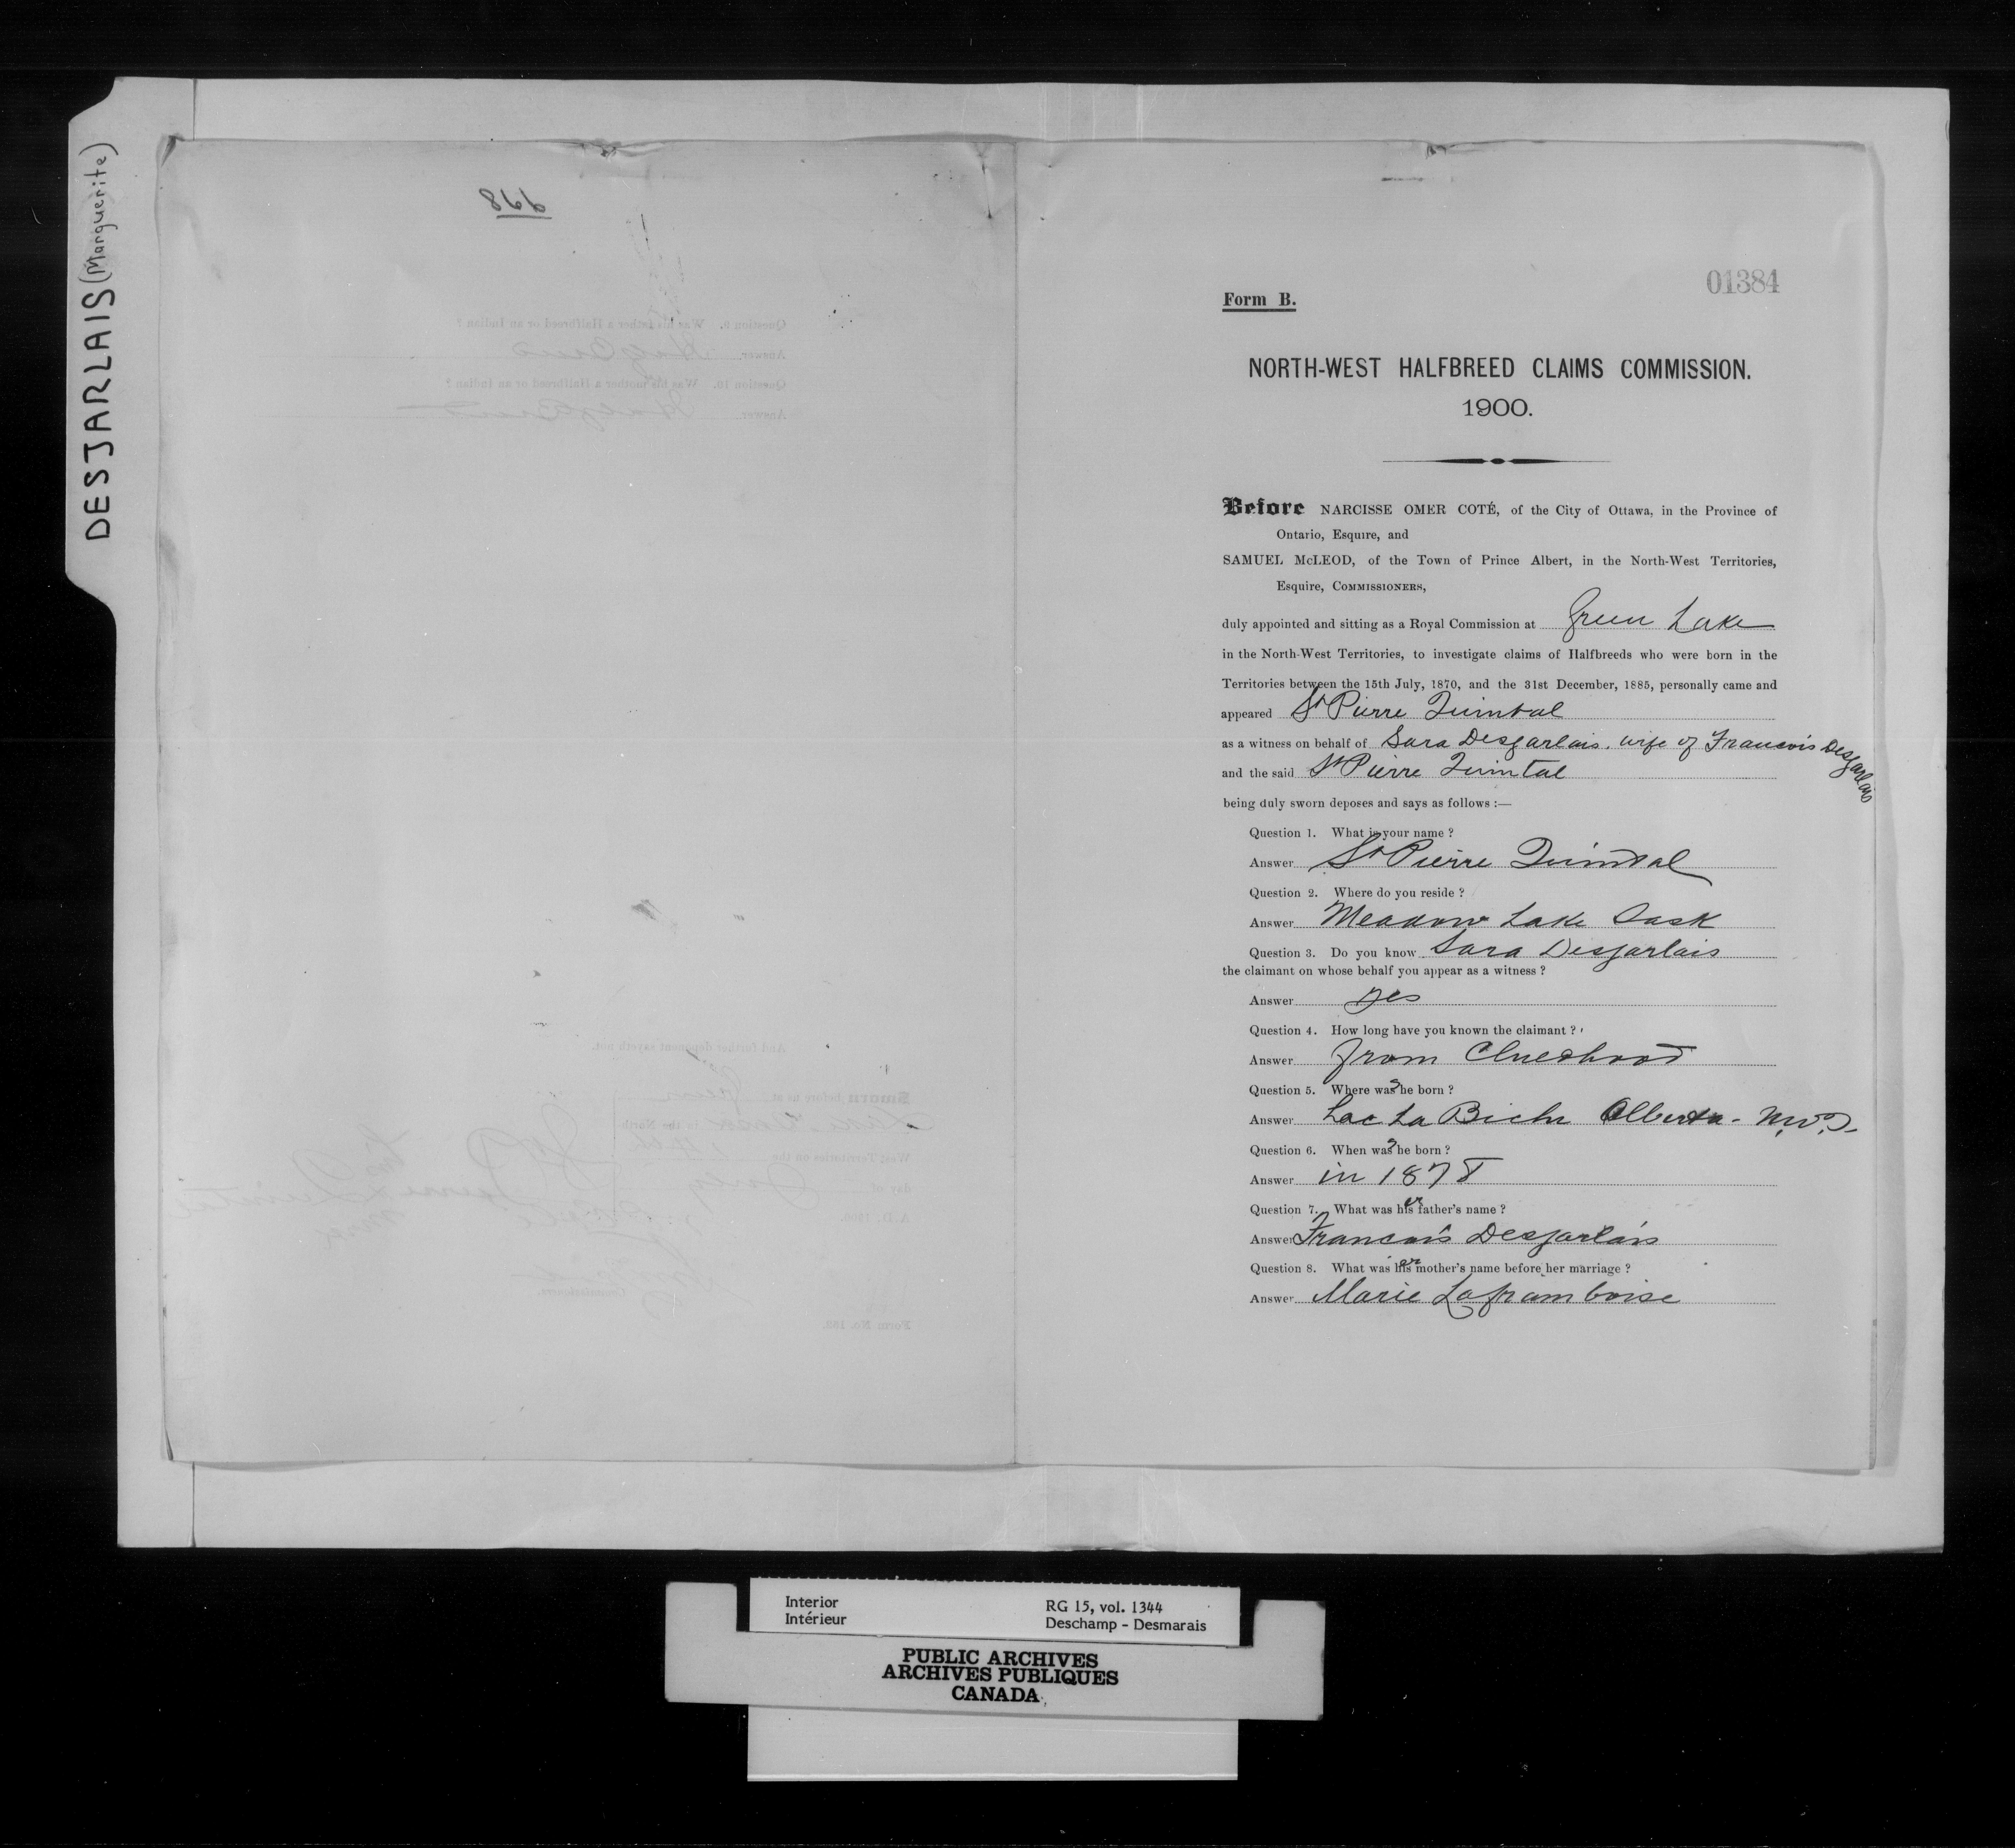 DESJARLAIS (Marguerite)
998
Question 9. Was his father a Halfbreed or an Indian?
Answer
Question 10. Was his mother a Halfbreed or an Indian?
Answer
And further deponent sayeth not.
Sworn before us at
in the North-
West Territories on the
day of July
A.D. 1900.
Commissioners.
Form No. 152.
01384
Form B.
NORTH-WEST HALFBREED CLAIMS COMMISSION.
1900.
Before NARCISSE OMER COTÉ, of the City of Ottawa, in the Province of
Ontario, Esquire, and
SAMUEL McLEOD, of the Town of Prince Albert, in the North-West Territories,
Esquire, COMMISSIONERS,
duly appointed and sitting as a Royal Commission at Green Lake
in the North-West Territories, to investigate claims of Halfbreeds who were born in the
Territories between the 15th July, 1870, and the 31st December, 1885, personally came and
appeared St Pierre Quintal
as a witness on behalf of Sara Desjarlais, wife of Francois Desjarlais
and the said St Pierre Quintal
being duly sworn deposes and says as follows :—
Question 1. What is your name ?
Answer St Pierre Quintal
Question 2. Where do you reside ?
Answer Meadow Lake Sask
Question 3. Do you know Sara Desjarlais
the claimant on whose behalf you appear as a witness ?
Answer yes
Question 4. How long have you known the claimant ?
Answer from Childhood
Question 5. Where was she born ?
Answer Lac La Biche Alberta - N.W.T.
Question 6. When was she born ?
Answer in 1878
Question 7. What was his er father's name ?
Answer Francois Desjarlais
Question 8. What was his er mother's name before her marriage ?
Answer Marie Laframboise
Interior
Intérieur
RG 15, vol. 1344
Deschamp - Desmarais
PUBLIC ARCHIVES
ARCHIVES PUBLIQUES
CANADA